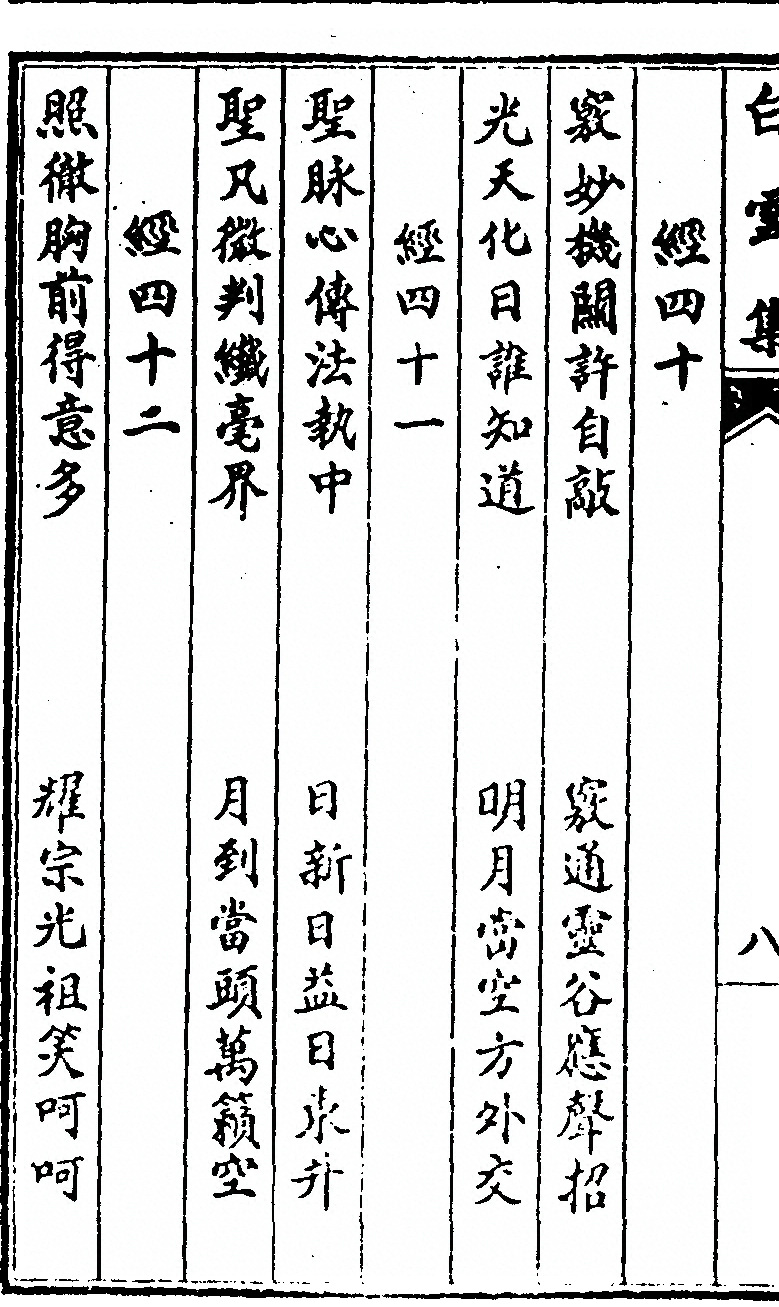 白靈集
八
經四十
竅妙機關許自敲　竅通靈谷應聲招
光天化日誰知道　明月當空方外交
經四十一
聖脉心傳法執中　日新日益日東升
聖凡微判纖毫界　月到當頭萬籟空
經四十二
照徹胸前得意多　耀宗光祖笑呵呵